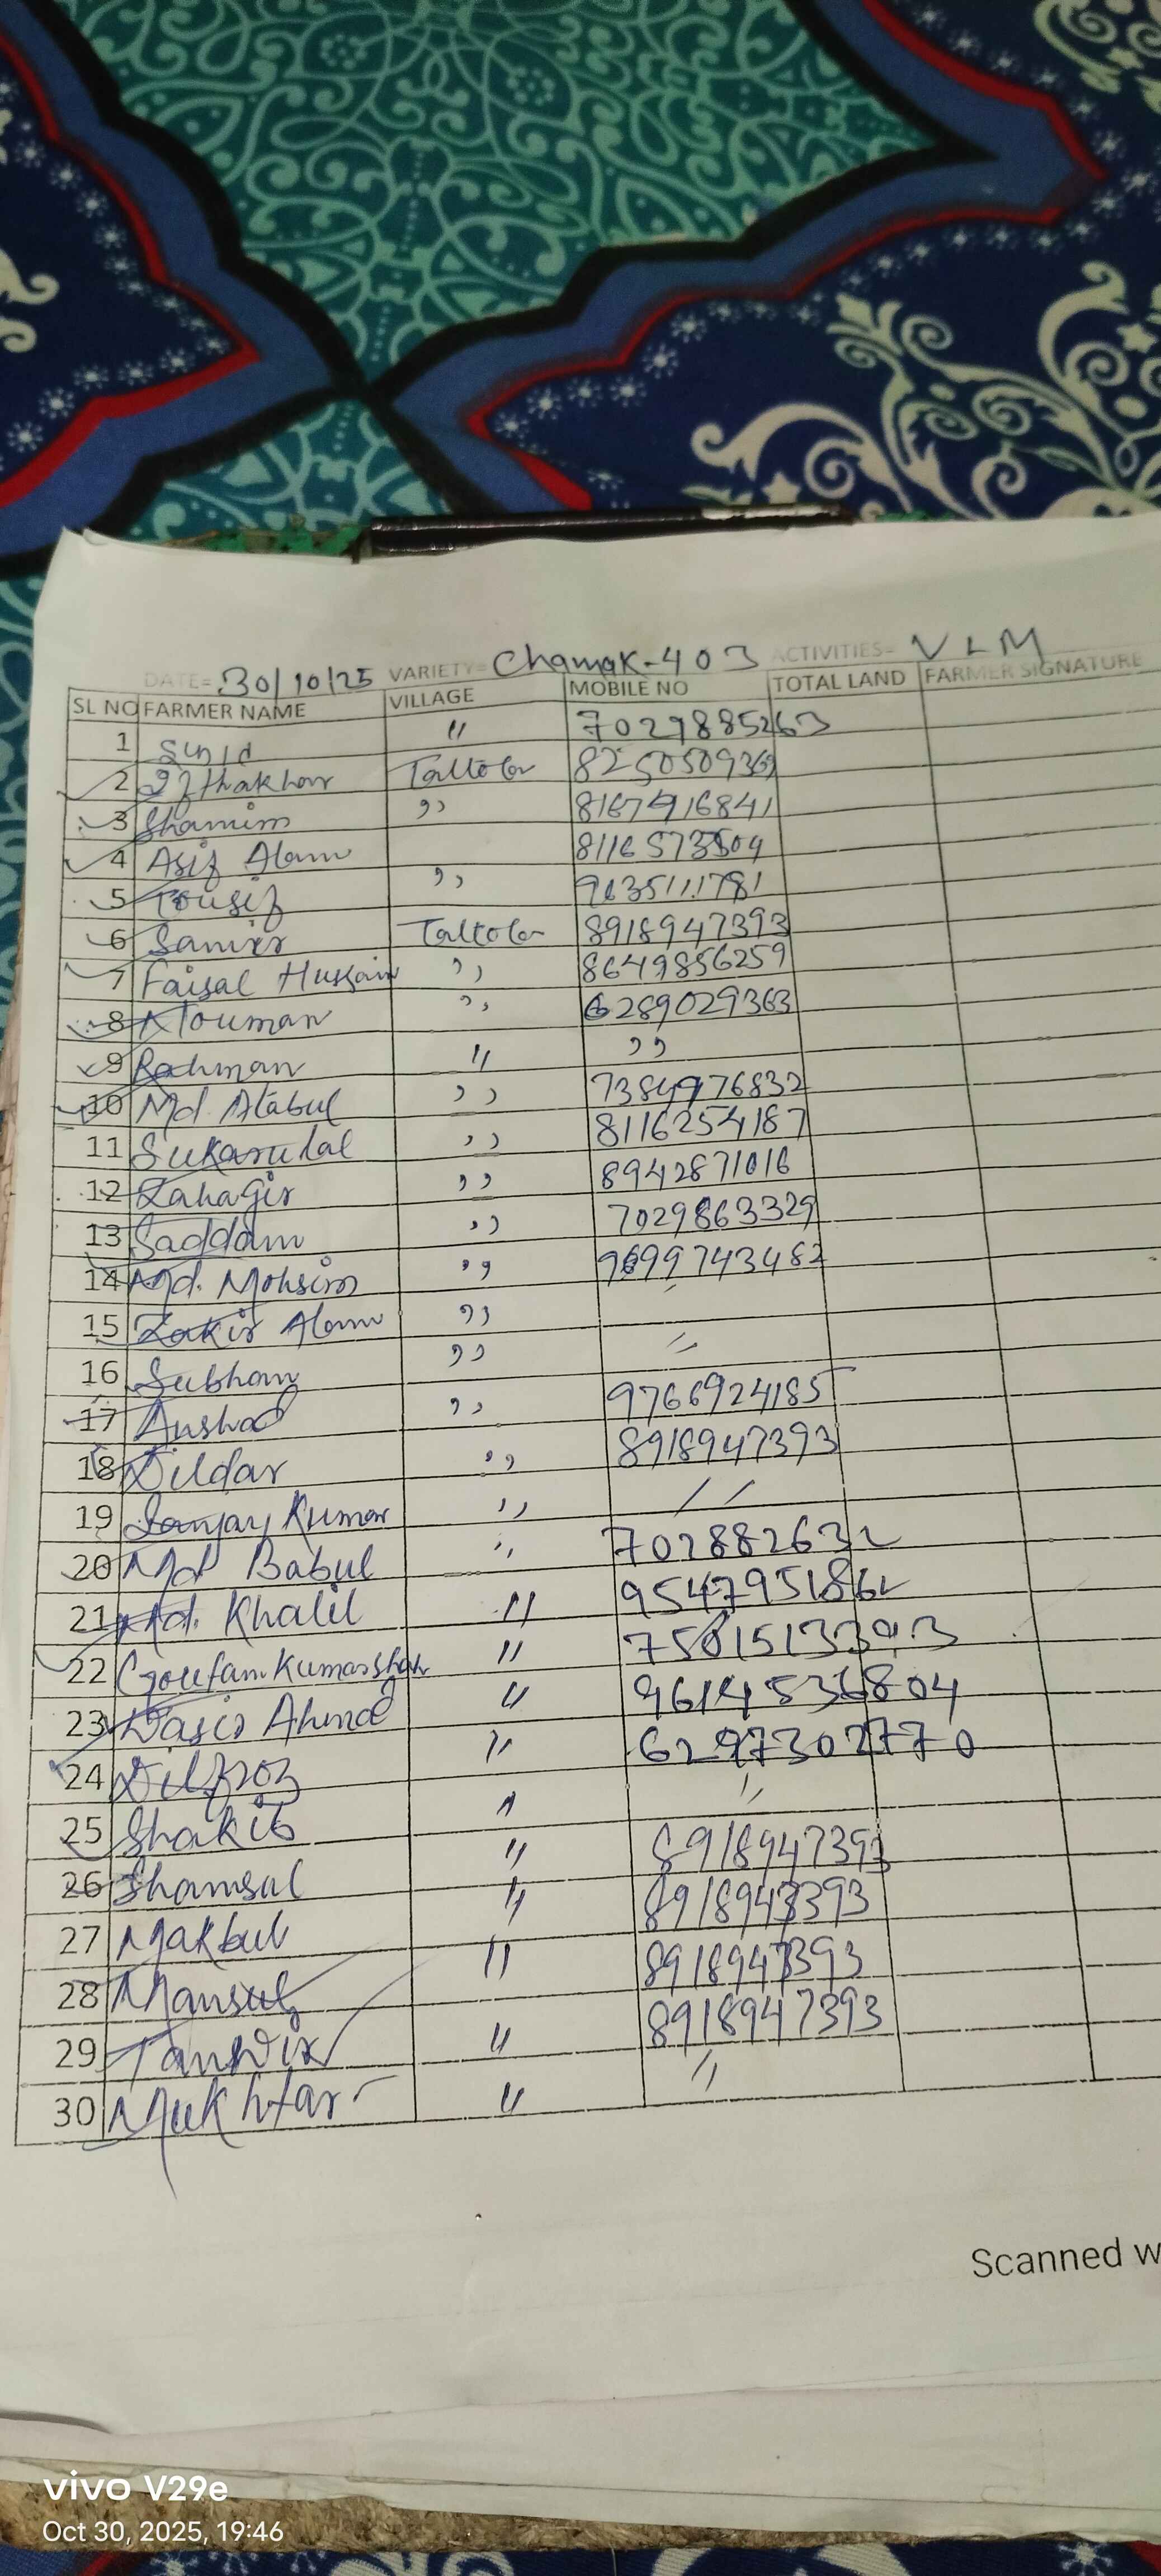 DATE= 30/10/25 VARIETY= Chamak-403 ACTIVITIES= VLM
SL NO FARMER NAME VILLAGE MOBILE NO TOTAL LAND FARMER SIGNATURE
1 "
2 Taltola 8250509369
3 Shamim " 8167916841
4 Asif Alam 8116573504
5 Tousif " 9635111781
6 Samir Taltola 8918947393
7 Faisal Hussain " 8649856259
8 Nouman " 6289029363
9 Rahman " "
10 Md. Atabul " 7384976832
11 Sukarulal " 8116254187
12 Zahagir " 8942871016
13 Saddam " 7029863329
14 Md. Mohsim "
15 Zakir Alam "
16 Subham " "
17 Anshad " 9766924185
18 Dildar " 8918947393
19 Sanjay Kumar " "
20 Md Babul "
21 Md. Khalil "
22 Goutam Kumar Shah "
23 Wasir Ahmad "
24 Dilfroz " 6297302770
25 Shakib " "
26 Shamsul " 8918947393
27 Makbul "
28 Mansul " 8918947393
29 Tanwir " 8918947393
30 Mukhtar " "
Scanned w
vivo V29e
Oct 30, 2025, 19:46